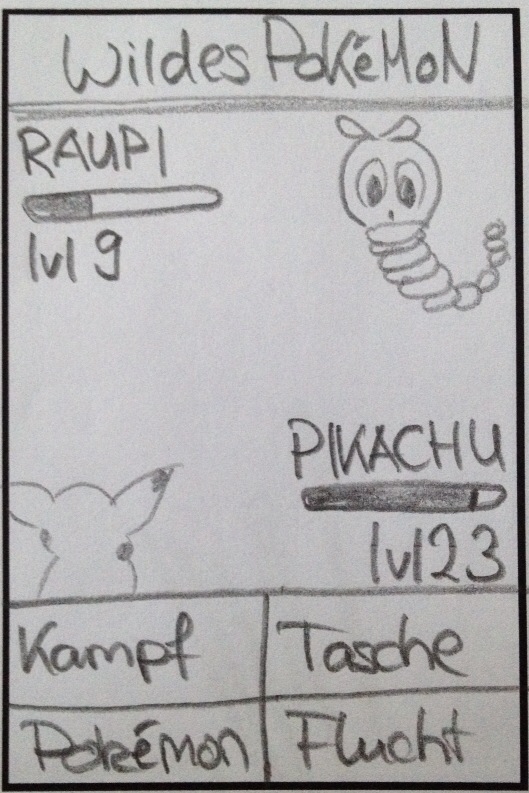 Wildes PoKéMoN
RAUPI
lvl 9
PIKACHU
lvl 23
Kampf
Tasche
Pokémon
Flucht